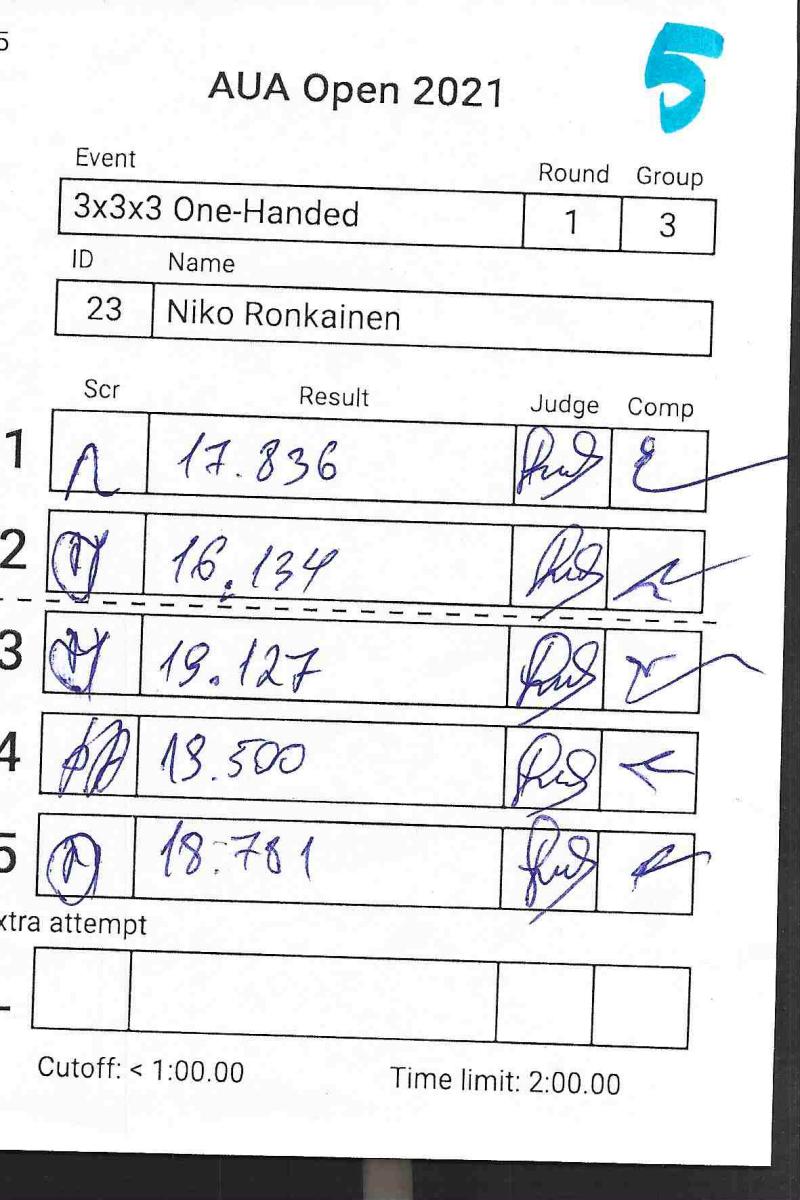 5
5
AUA Open 2021
Event Round Group
3x3x3 One-Handed 1 3
ID Name
23 Niko Ronkainen
Scr Result Judge Comp
1 17.836
2 16.134
3 19.127
4 19.500
5 18.781
xtra attempt
Cutoff: < 1:00.00 Time limit: 2:00.00